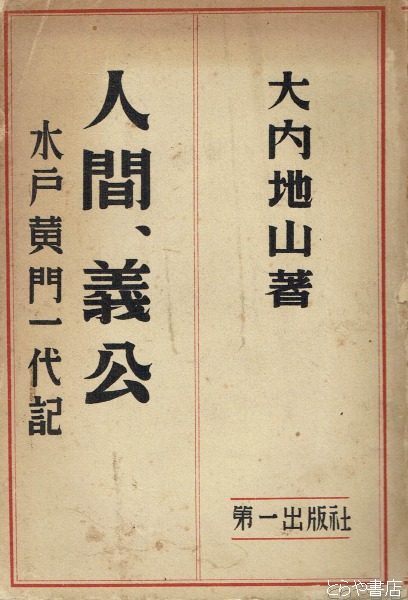 大内地山著
人間、義公
水戸黄門一代記
第一出版社
とらや書店